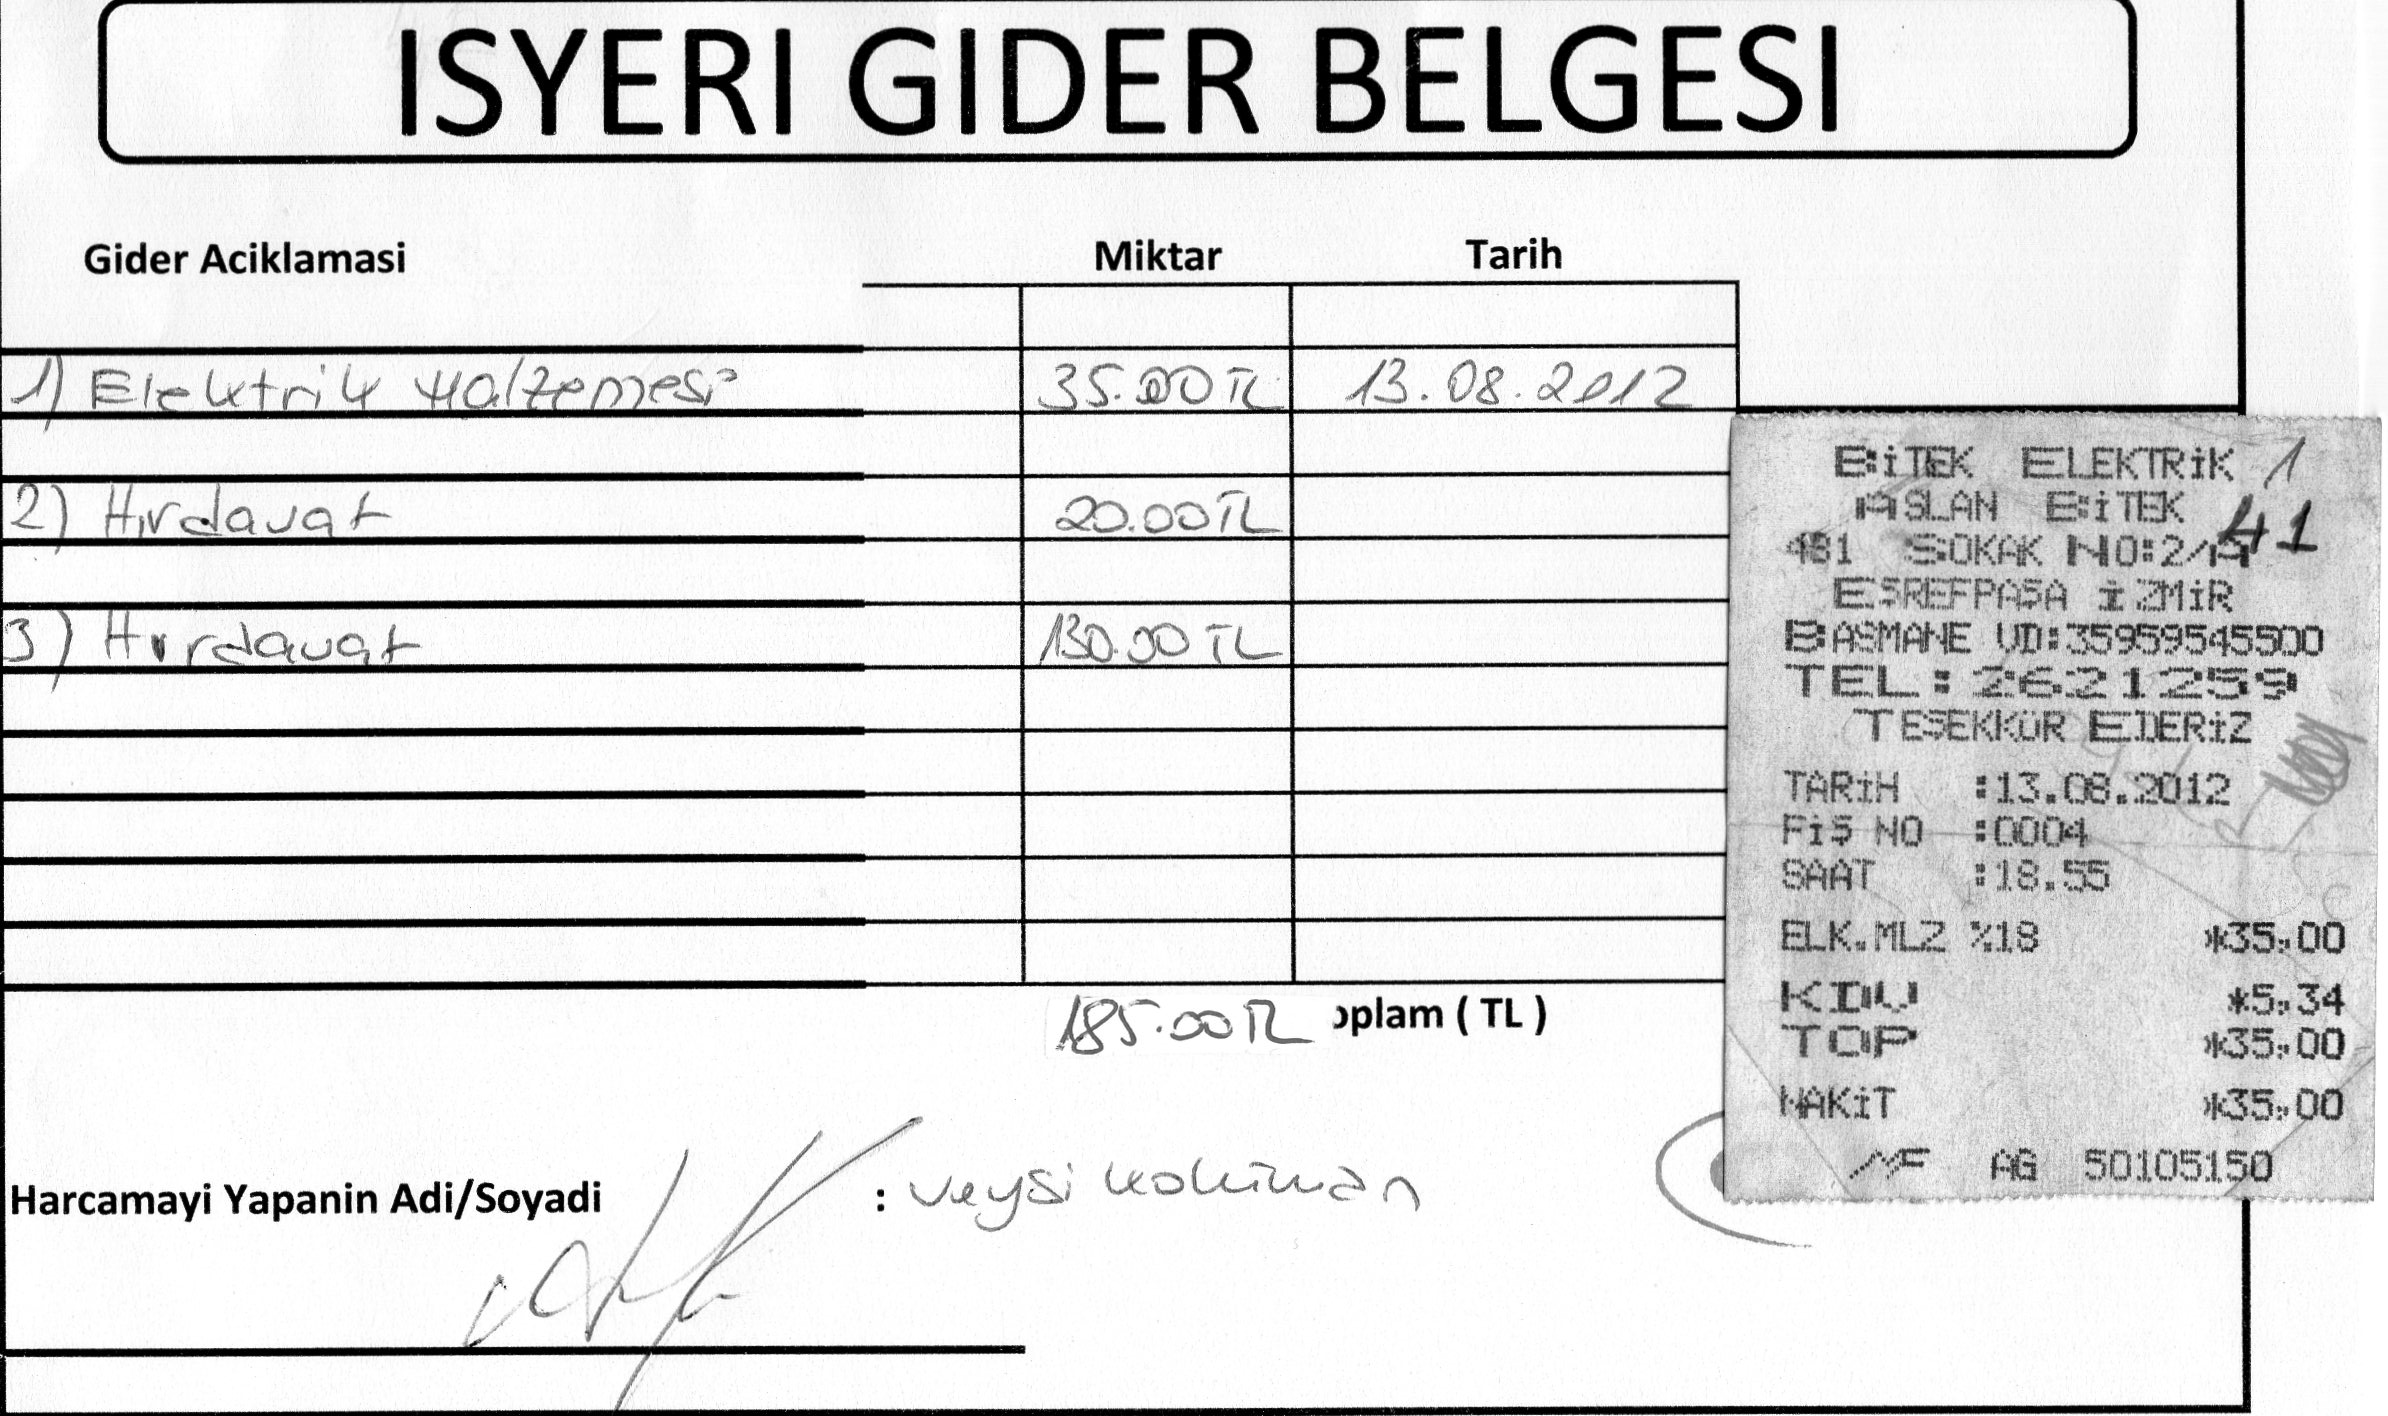 ISYERI GIDER BELGESI
Gider Aciklamasi Miktar Tarih
1) Elektrik Malzemesi 35.00 TL 13.08.2012
2) Hırdavat 20.00 TL
3) Hırdavat 130.00 TL
185.00 TL oplam ( TL )
Harcamayi Yapanin Adi/Soyadi : Veysi
BİTEK ELEKTRİK 1
ASLAN BİTEK
41
481 SOKAK NO:2/A
EŞREFPAŞA İZMİR
BASMANE VD:35959545500
TEL:2621259
TEŞEKKÜR EDERİZ
TARİH :13.08.2012
FİŞ NO :0004
SAAT :18.55
ELK.MLZ %18 *35,00
KDV *5,34
TOP *35,00
NAKİT *35,00
MF AG 50105150